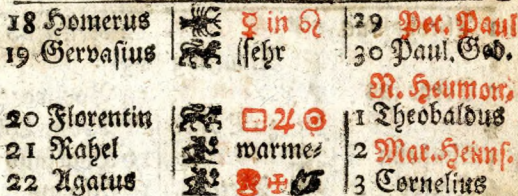 18 Homerus ♀ in ♌ 29 Pet. Paul
19 Gervasius sehr 30 Paul. Ged.
N. Heumon.
20 Florentin □ ♃ ☉ 1 Theobaldus
21 Rahel warme⸗ 2 Mar. Heims.
22 Agatus 3 Cornelius